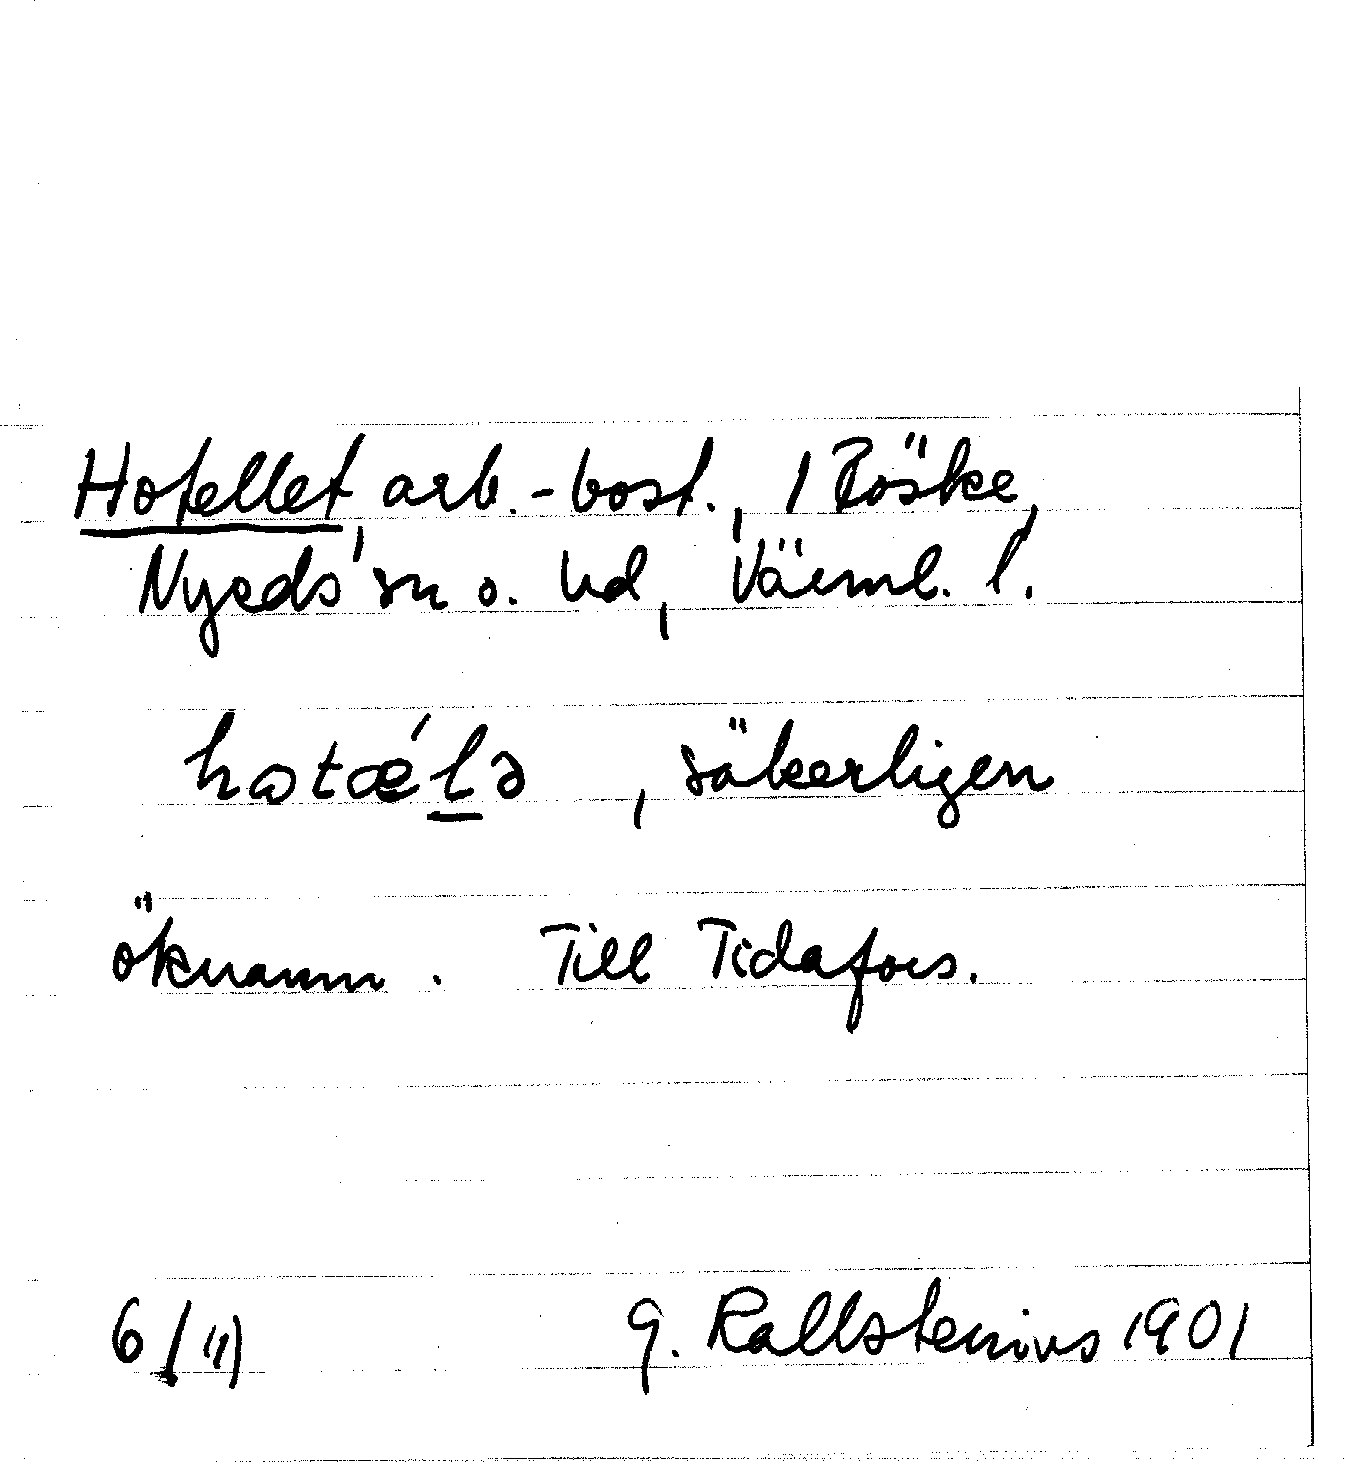 Hotellet, arb.-bost., 1 Röske,
Nyeds sn o. hd, Värml. l.
hɷtǽlə, säkerligen
öknamn. Till Tidafors.
6/11)
G. Kallstenius 1901